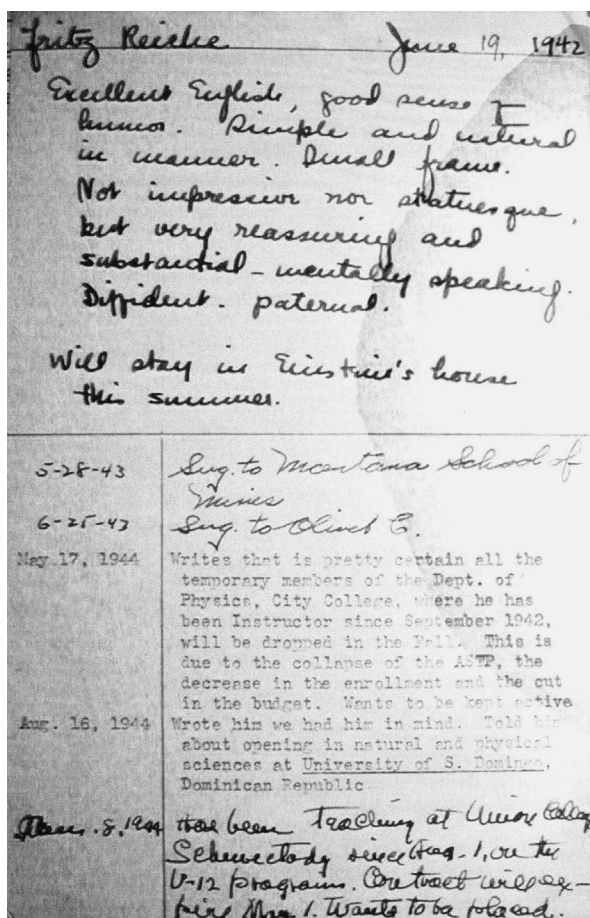 Fritz Reiche June 19, 1942
Excellent English, good sense of
humor. Simple and natural
in manner. Small frame.
Not impressive nor statuesque,
but very reassuring and
substantial - mentally speaking.
Diffident. paternal.
Will stay in Einstine's house
this summer.
5-28-43 Sug. to Montana School of
Mines
6-25-43 Sug. to Olivet C.
May 17, 1944 Writes that is pretty certain all the
temporary members of the Dept. of
Physics, City College, where he has
been Instructor since September 1942,
will be dropped in the Fall. This is
due to the collapse of the ASTP, the
decrease in the enrollment and the cut
in the budget. Wants to be kept active
Aug. 16, 1944 Wrote him we had him in mind. Told him
about opening in natural and physical
sciences at University of S. Domingo,
Dominican Republic
8, 1944 Has been teaching at Union College
Schenectady since Aug. 1, on the
V-12 programs. Contract will ex-
pire 1. Wants to be placed.